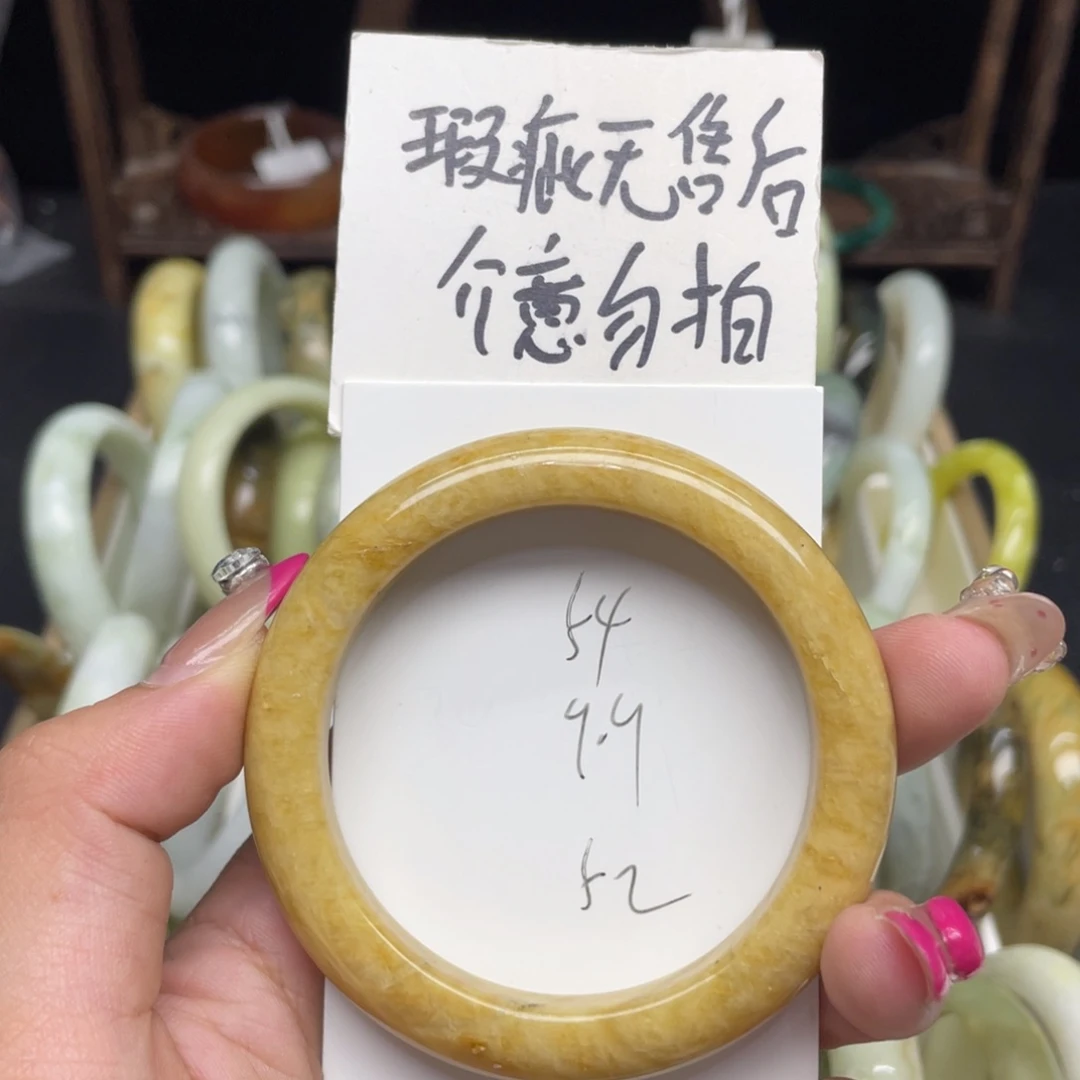 瑕疵无售后
介意勿拍
54
9.9
52